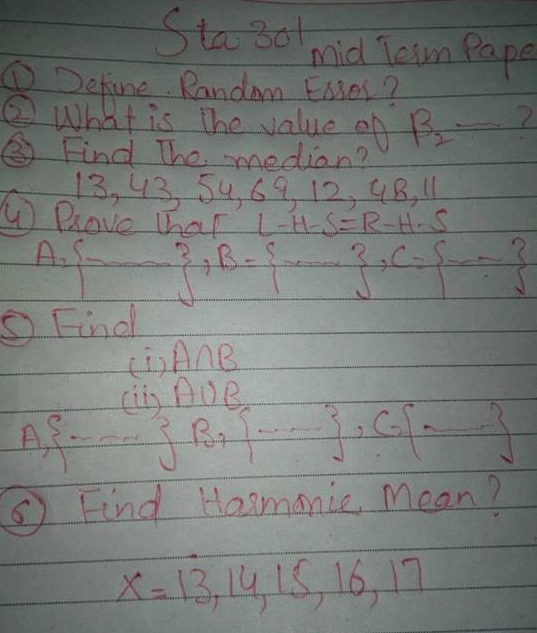 Sta 301
mid Term Pape
① Define Random Error?
② What is the value of B₂ — ?
③ Find The median?
13, 43, 54, 69, 12, 48, 11
④ Prove that L-H-S=R-H-S
A={------}, B={-----}, C={----}
⑤ Find
(i) A∩B
(ii) A∪B
A,{-----} B,{-----}, C{----}
⑥ Find Harmonic Mean?
X=13, 14, 15, 16, 17